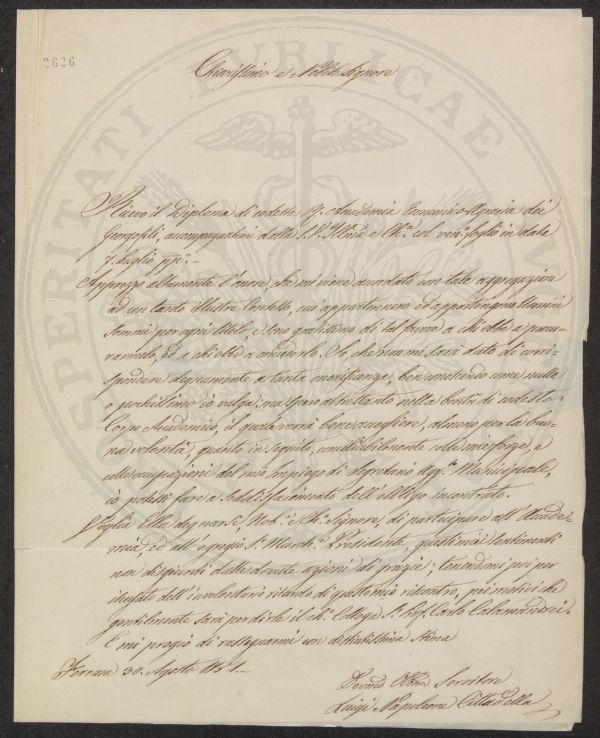 2626
Chiarissimo e Nobile Signore
Ricevo il Diploma di codesta R. Accademia Economico-Agraria dei
Georgofili, accompagnatomi dalla S.V. Ill.ma e Ch. col ven. foglio in data
7. Luglio pp.
Apprezzo altamente l'onore, che mi viene accordato con tale aggregazione
ad un tanto illustre Consesso, cui appartennero ed appartengono Uomini
sommi per ogni titolo, e sono gratissimo di tal favore a chi ebbe a procu-
rarmelo, ed a chi ebbe a accordarlo. So, che non mi sarà dato di corri-
spondere degnamente a tanta onorificenza, ben conoscendo come nulla
o pochissimo io valga; ma spero altrettanto nella bontà di codesto
Corpo Accademico, il quale vorrà bene accogliere, almeno per la buo-
na volontà, quanto in seguito, conciliabilmente colle mie forze, e
colle occupazioni del mio Impiego di Segretario Agg. Municipale,
io potessi fare a soddisfacimento dell'obbligo incontrato.
Voglia Ella degnarsi, Nob. e Ch. Signore, di partecipare all'Accade-
mia, ed all'egregio Sr. March. Presidente, questi miei sentimenti
non disgiunti dalle dovute azioni di grazie; tenendomi poi per
iscusato dell'involontario ritardo di questo mio riscontro, pei motivi che
gentilmente sarà per dirle il Ch. Collega Sr. Prof. Carlo Calamandrei.
E mi pregio di rassegnarmi con distintissima stima
Ferrara 30. Agosto 1851.
Devmo Obbmo Servitore
Luigi Napoleone Cittadella
PROSPERITATI PUBLICAE